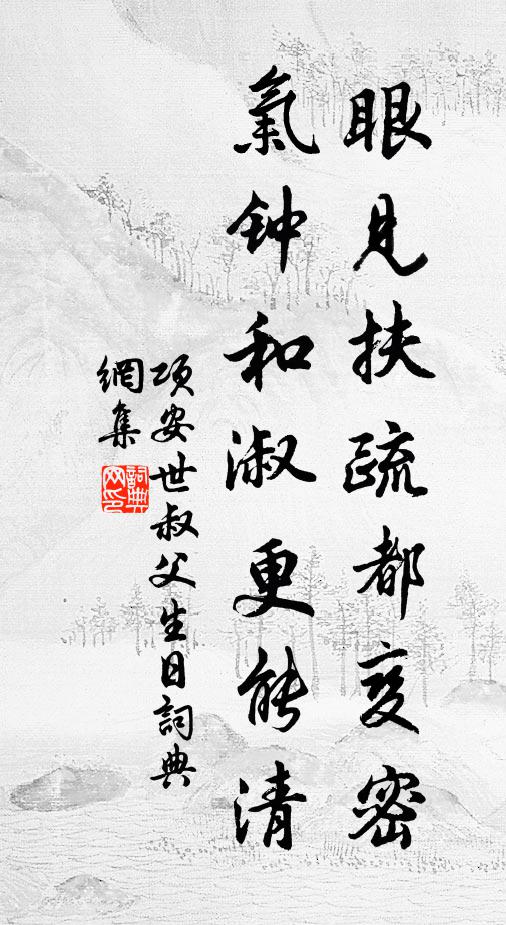 眼見扶疏都变密
氣钟和淑更能清
項安世叔父生日詞典
網集
詞典网印